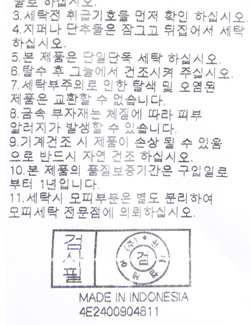 물로 하십시오.
3.세탁전 취급기호를 먼저 확인 하십시오
4.지퍼나 단추들은 잠그고 뒤집어서 세탁
하십시오.
5.본 제품은 단일단독 세탁 하십시오.
6.탈수 후 그늘에서 건조시켜 주십시오.
7.세탁부주의로 인한 탈색 및 오염된
제품은 교환할 수 없습니다.
8.금속 부자재는 체질에 따라 피부
알러지가 발생할 수 있습니다.
9.기계건조 시 제품이 손상 될 수 있음
으로 반드시 자연 건조 하십시오.
10.본 제품의 품질보증기간은 구입일로
부터 1년입니다.
11.세탁시 모피부분은 별도 분리하여
모피세탁 전문점에 의뢰하십시오.
검사필
검
MADE IN INDONESIA
4E2400904811